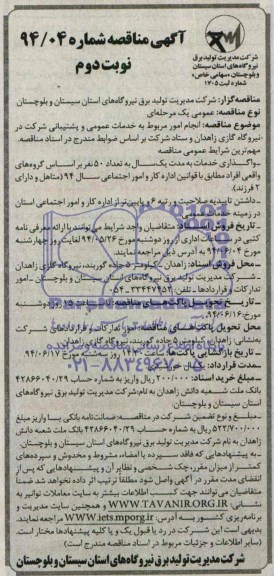 شرکت مدیریت تولید برق
نیروگاه‌های استان سیستان
وبلوچستان «سهامی خاص»
شماره ثبت ۱۷۰۵
آگهی مناقصه شماره ۹۴/۰۴
نوبت دوم
مناقصه‌گزار: شرکت مدیریت تولید برق نیروگاه‌های استان سیستان و بلوچستان
نوع مناقصه: عمومی یک مرحله‌ای
موضوع مناقصه: انجام امور مربوط به خدمات عمومی و پشتیبانی شرکت در
نیروگاه گازی زاهدان و ستاد شرکت بر اساس ضوابط مندرج در اسناد مناقصه.
مهم‌ترین شرایط عمومی مناقصه
ـ واگذاری خدمات به مدت یک‌سال به تعداد ۵۰ نفر بر اساس گروه‌های
واقعی افراد مطابق با قوانین اداره کار و امور اجتماعی سال ۹۴ (متاهل و دارای
۲ فرزند).
ـ داشتن تاییدیه صلاحیت و رتبه ۶ و پایین‌تر از اداره کار و امور اجتماعی استان
در زمینه
ـ تاریخ فروش اسناد: متقاضیان واجد شرایط می‌توانند با ارائه معرفی نامه
کتبی در ساعات اداری از روز دوشنبه مورخ ۹۴/۰۵/۲۶ لغایت روز چهارشنبه
مورخ ۹۴/۰۶/۰۴ به آدرس ذیل مراجعه نمایند.
ـ محل فروش اسناد: زاهدان، کیلومتر ۵ جاده گوربند، نیروگاه گازی زاهدان
شرکت مدیریت تولید برق نیروگاه‌های استان سیستان و بلوچستان ـ امور
تدارکات و قراردادها ـ تلفن: ۳۳۴۴۷۹۵۳ـ۰۵۴
ـ تاریخ تحویل پاکت‌های مناقصه: تا ساعت ۱۵ روز دوشنبه
مورخ ۹۴/۰۶/۱۶
محل تحویل پاکت‌های مناقصه: امور تدارکات و قراردادهای شرکت
به‌نشانی: زاهدان، کیلومتر ۵ جاده گوربند، نیروگاه گازی زاهدان
ـ تاریخ بازگشایی پاکت‌ها: ساعت ۱۴:۳۰ روز سه‌شنبه مورخ ۹۴/۰۶/۱۷
ـ مدت قرارداد: یکسال
۰۲۱-۸۸۳۴۹۶۷۰-۵
ـ مبلغ خرید اسناد: ۲۰۰/۰۰۰ ریال واریز به شماره حساب ۴۲۸۶۶۰۴۰/۲۹
بانک ملت شعبه دانش زاهدان به نام: شرکت مدیریت تولید برق نیروگاه‌های
استان سیستان و بلوچستان.
ـ مبلغ و نوع تضمین شرکت در مناقصه: ضمانت‌نامه بانکی یا واریز مبلغ
۵۲۲/۷۰۰/۰۰۰ ریال به شماره حساب ۴۲۸۶۶۰۴۰/۲۹ بانک ملت شعبه دانش
زاهدان به نام شرکت مدیریت تولید برق نیروگاه‌های استان سیستان و بلوچستان.
به پیشنهادهایی که فاقد سپرده یا امضاء، مشروط و مخدوش و سپرده‌های
کمتر از میزان مقرر، چک شخصی و نظایر آن و پیشنهادهایی که پس از
انقضای مدت مقرر در آگهی واصل شود مطلقا ترتیب اثر داده نخواهد شد ضمنا
متقاضیان می‌توانند جهت کسب اطلاعات بیشتر به سایت معاملات توانیر به
نشانی: WWW.TAVANIR.ORG.IR و همچنین سایت مدیریت و
برنامه‌ریزی کشور به آدرس: WWW.iets.mporg.ir مراجعه نمایند.
بدیهی است این شرکت در رد یا قبول یک و یا کلیه پیشنهادها مختار است.
(سایر اطلاعات و جزئیات مربوط در اسناد مناقصه مندرج است)
شرکت مدیریت تولید برق نیروگاه‌های استان سیستان و بلوچستان